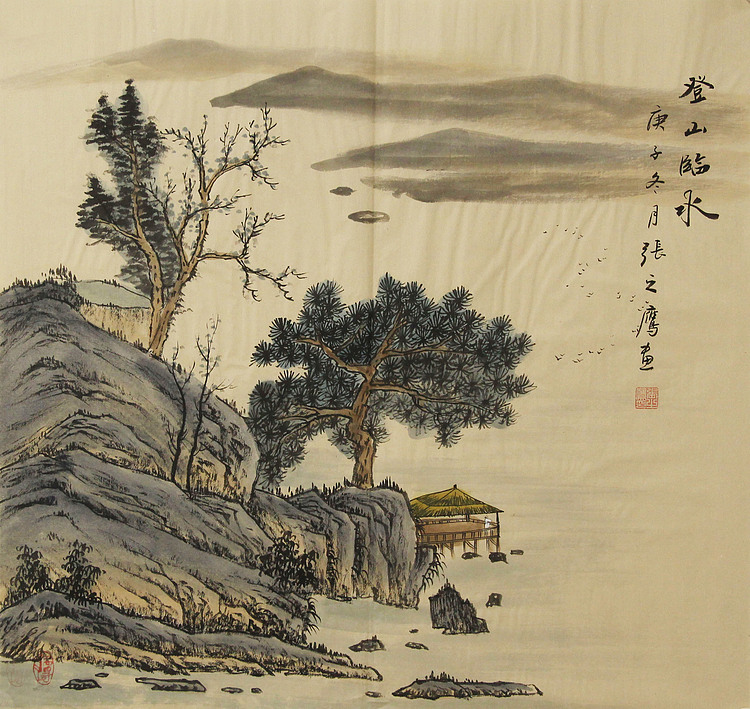 登山臨水
庚子冬月張之鷹画